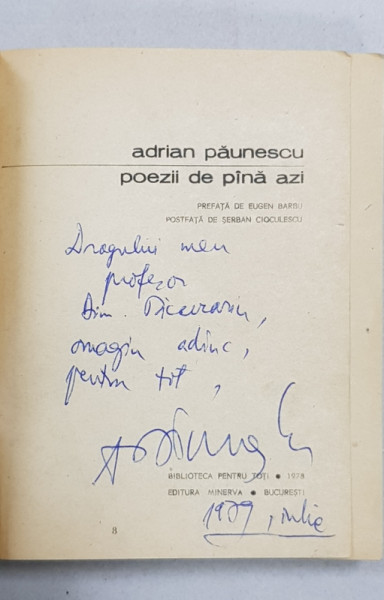 adrian păunescu
poezii de pînă azi
PREFAȚĂ DE EUGEN BARBU
POSTFAȚĂ DE ȘERBAN CIOCULESCU
Dragului meu
profesor
Dim.
omagiu adînc,
pentru tot,
BIBLIOTECA PENTRU TOȚI • 1978
EDITURA MINERVA • BUCUREȘTI
1979, iulie
8